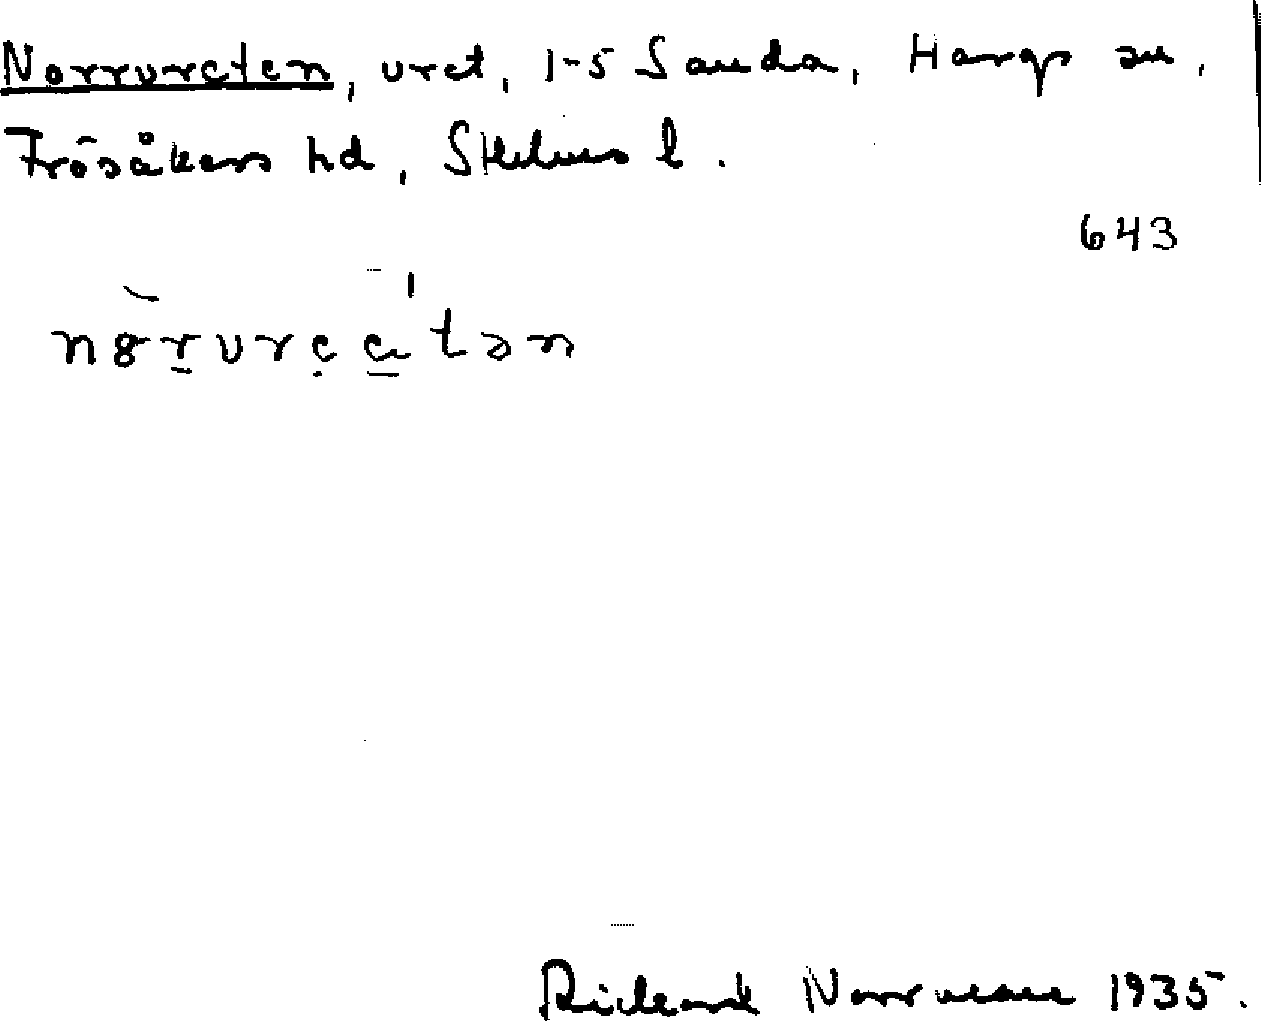 Norrvreten, vret, 1-5 Sanda, Hargs sn,
Frösåkers hd, Sthlms l.
643
Rickard Norrman 1935.